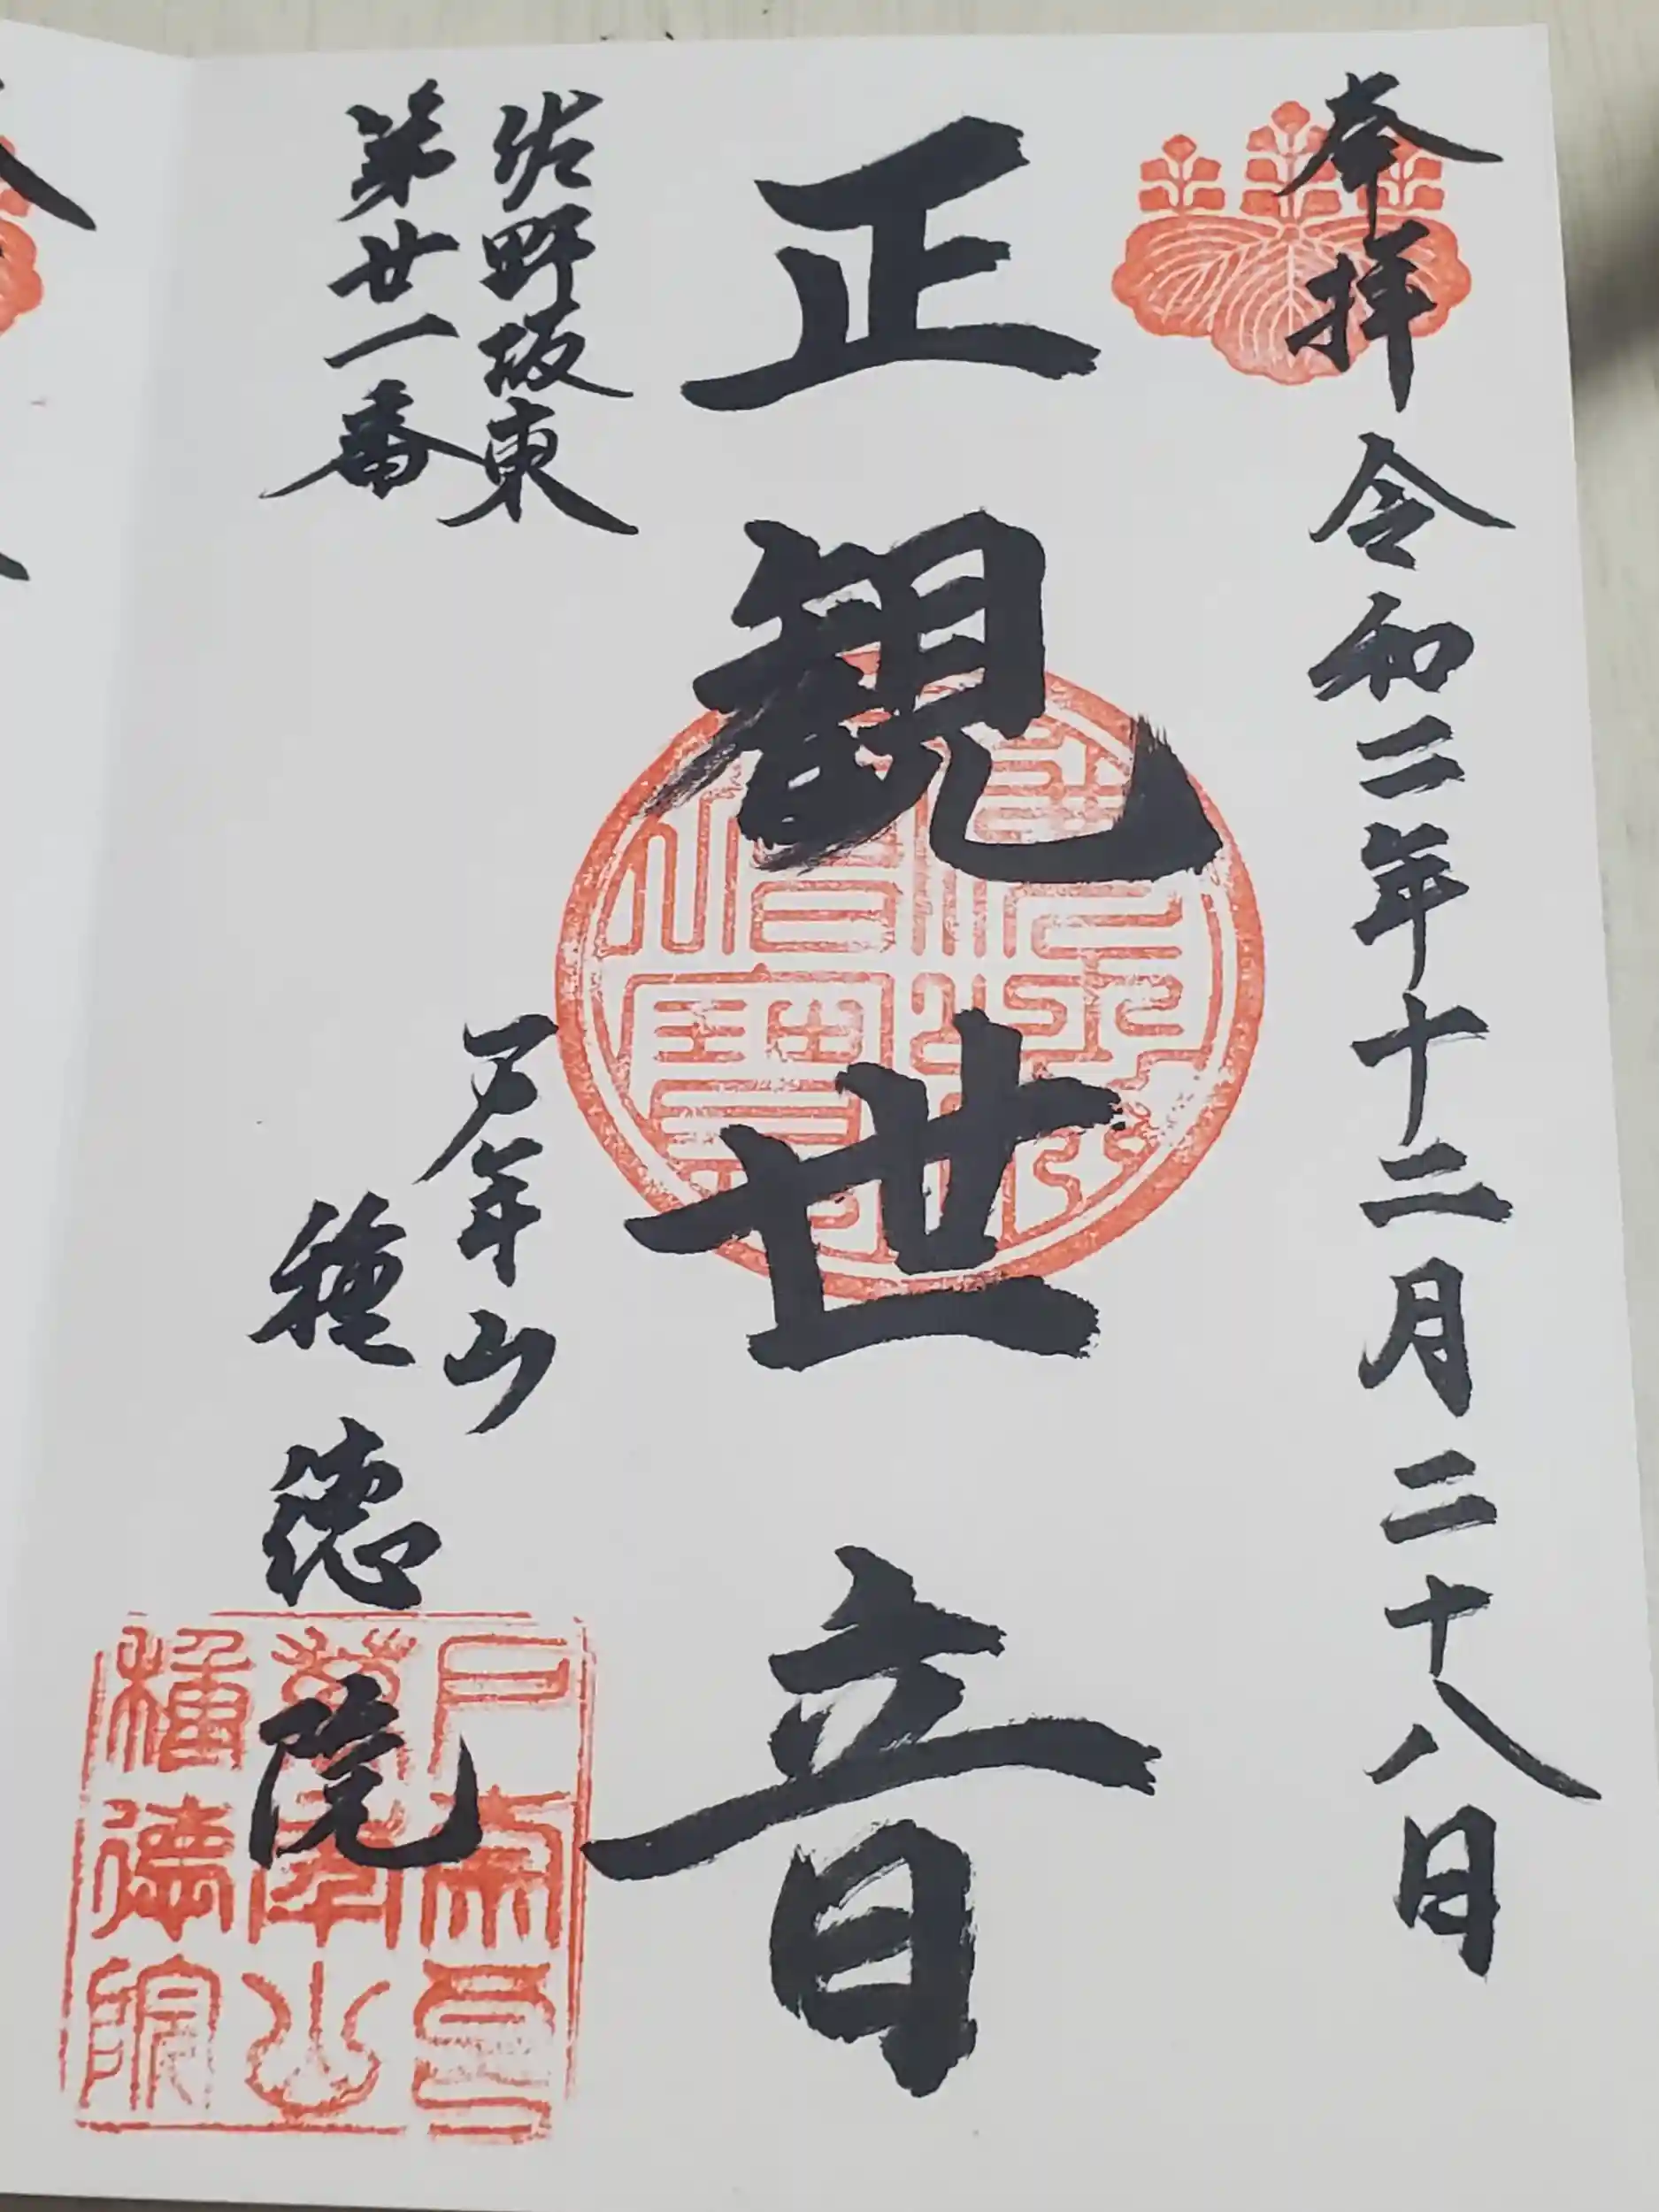 奉拝 令和二年十二月二十八日
正観世音
佐野坂東
第廿一番
万年山
種徳院
種徳院